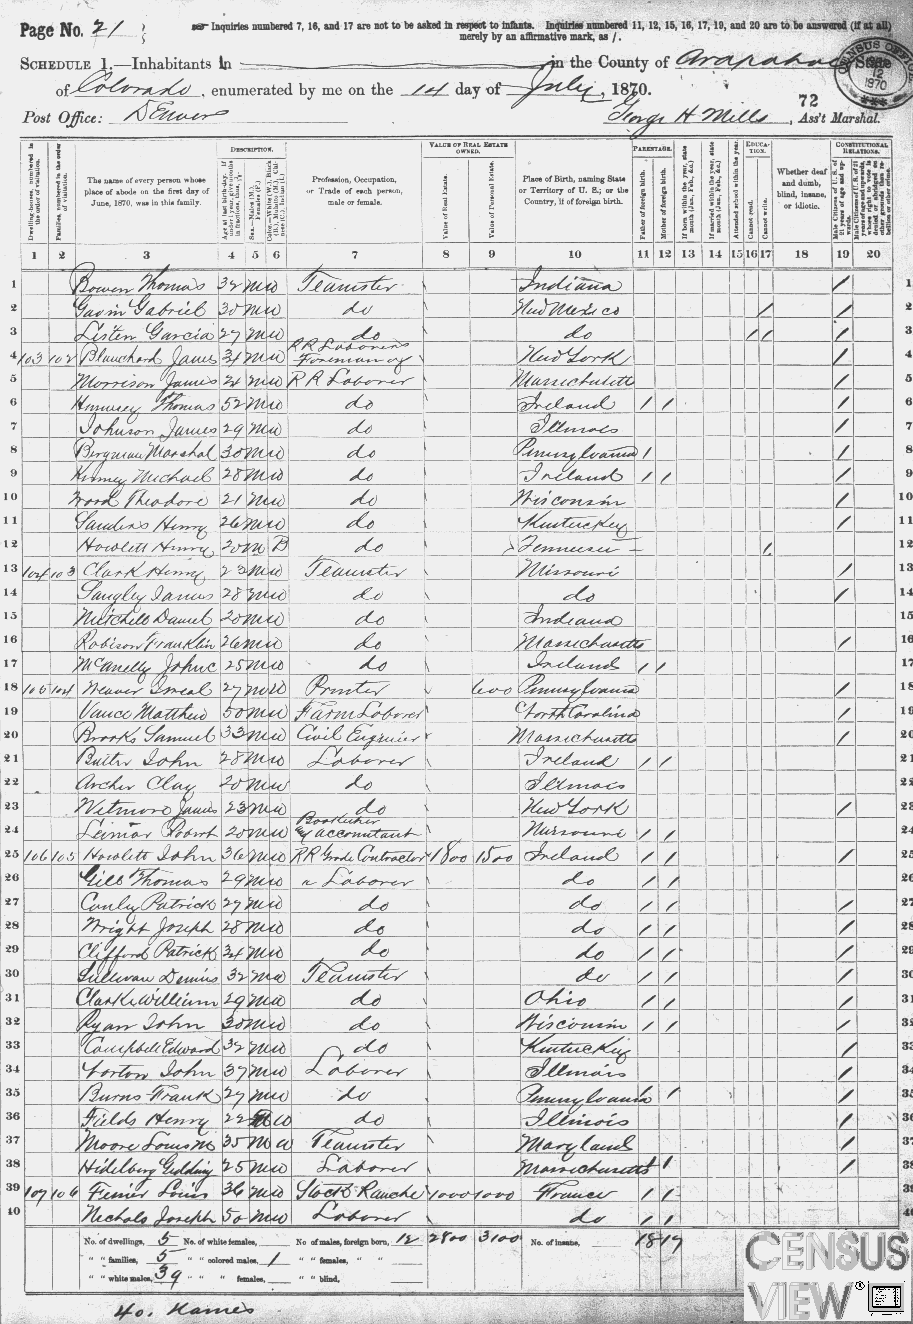 Page No. 21
☞ Inquiries numbered 7, 16, and 17 are not to be asked in respect to infants. Inquiries numbered 11, 12, 15, 16, 17, 19, and 20 are to be answered (if at all)
merely by an affirmative mark, as /.
SCHEDULE 1.—Inhabitants in in the County of Arapahoe State
of Colorado, enumerated by me on the 14 day of July, 1870.
CENSUS OFFICE 12 1870
72
Post Office: Denver George H Mills, Ass't Marshal.
Dwelling-houses, numbered in the order of visitation.
Families, numbered in the order of visitation.
The name of every person whose place of abode on the first day of June, 1870, was in this family.
DESCRIPTION.
Profession, Occupation, or Trade of each person, male or female.
VALUE OF REAL ESTATE OWNED.
Value of Real Estate.
Value of Personal Estate.
Place of Birth, naming State or Territory of U. S.; or the Country, if of foreign birth.
PARENTAGE.
Father of foreign birth.
Mother of foreign birth.
If born within the year, state month (Jan., Feb., &c.)
If married within the year, state month (Jan., Feb., &c.)
Attended school within the year.
EDUCATION.
Cannot read.
Cannot write.
Whether deaf and dumb, blind, insane, or idiotic.
CONSTITUTIONAL RELATIONS.
1 2 3 4 5 6 7 8 9 10 11 12 13 14 15 16 17 18 19 20
1 Bowen Thomas 32 M W Teamster Indiana / 1
2 Gavin Gabriel 30 M W do New Mexico / / 2
3 Listen Garcia 27 M W do do / / / 3
4 103 102 Blanchard James 34 M W RR Laborers Foreman of New York / 4
5 Morrison James 24 M W RR Laborer Massachusetts / 5
6 Thomas 52 M W do Ireland / / / 6
7 Johnson James 29 M W do Illinois / 7
8 Bergman Marshal 30 M W do Pennsylvania / / 8
9 Kinney Michael 28 M W do Ireland / / / 9
10 Wood Theodore 21 M W do Wisconsin / 10
11 Sanders Henry 26 M W do Kentuckey / 11
12 Howlett Henry 20 M B do Tennessee / 12
13 104 103 Clark Henry 23 M W Teamster Missouri / 13
14 Langley James 28 M W do do / 14
15 Mitchell Daniel 20 M W do Indiana 15
16 Robison Franklin 26 M W do Massachusetts / 16
17 McAnelly John C 25 M W do Ireland / / 17
18 105 104 Weaver 27 M W Printer 600 Pennsylvania / 18
19 Vance Matthew 50 M W Farm Laborer North Carolina / 19
20 Brooks Samuel 33 M W Civil Engineer Massachusetts / 20
21 Butler John 28 M W Laborer Ireland / / 21
22 Archer Clay 20 M W do Illinois 22
23 Wetmore James 23 M W do New York / 23
24 20 M W Bookkeeper & accountant Missouri / / 24
25 106 105 Howlett John 36 M W RR Grade Contractor 1800 1500 Ireland / / / 25
26 Gill Thomas 29 M W Laborer do / / / 26
27 Conly Patrick 27 M W do do / / / 27
28 Wright Joseph 28 M W do do / / / 28
29 Clifford Patrick 34 M W do do / / / 29
30 Sullivan Dennis 32 M W Teamster do / / / 30
31 Clarke William 29 M W do Ohio / / / 31
32 Ryan John 30 M W do Wisconsin / / / 32
33 Campbell Edward 32 M W do Kentuckey / 33
34 Norton John 37 M W Laborer Illinois / 34
35 Burns Frank 27 M W do Pennsylvania / / / 35
36 Fields Henry 22 M W do Illinois / 36
37 Moore Louis M 35 M W Teamster Maryland / 37
38 Hidelberg 25 M W Laborer Massachusetts / / / 38
39 107 106 Louis 36 M W Stock Ranche 1000 1000 France / / 39
40 Nichols Joseph 50 M W Laborer do / / 40
No. of dwellings, 5 No. of white females, No. of males, foreign born, 12 2800 3100 No. of insane, 18 17
" " families, 5 " " colored males, 1 " " females, " "
" " white males, 39 " " " females, " " blind,
40. Names
CENSUS
VIEW®